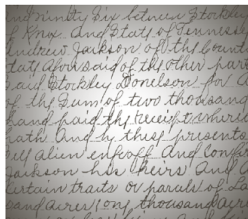 and ninety Six between Stockley
Knox And State of Tennessee
Andrew Jackson of the Count
State aforesaid of the other part
Said Stockley Donelson for
of the Sum of two thousand
hand paid the receipt
hath And by these presents
Sell alien enfeoff And Conf
Jackson his heirs And
Certain tracts or parcels of L
Sand acres (one thousand Acr